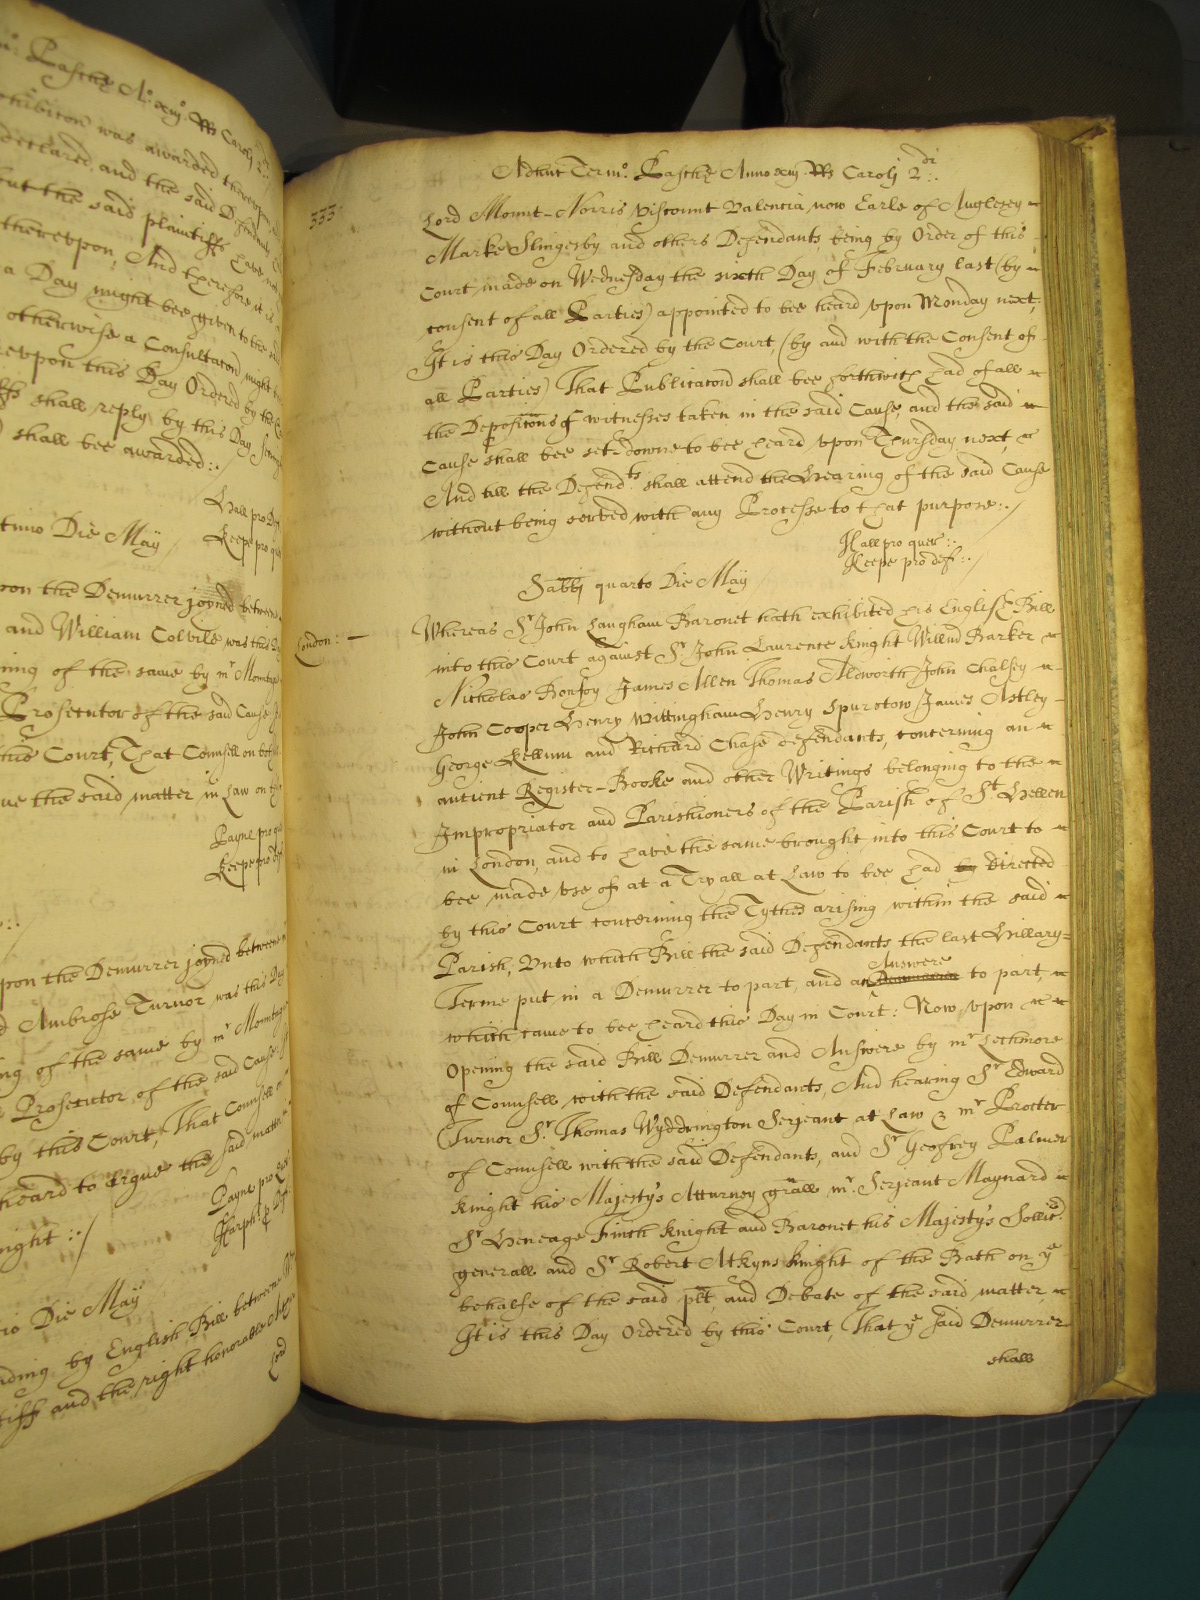 Paschę Aᵒ. xiijᵒ. RRs Carolj 2
was awarded
declared, and the said
but the said plaintiffs have
therevpon, And therefore it is
a Day might bee given to the
otherwise a Consultacon might
vpon this Day Ordered by the
shall reply, by this Day
shall bee awarded:./
Hall pro
Keepe pro
Die May
vpon the Demurrer joyned betweene
and William Colvile was this
of the same by mr Mountague
Prosecutor of the said Cause
this Court, That Counsell on
the said matter in Law on
Payne pro
Keepe pro
vpon the Demurrer joyned betweene
Ambrose Turnor was this Day
of the same by mr Mountague
Prosecutor of the said Cause
by this Court, That Counsell
heard to argue the said matter
Payne pro
Die May
by English Bill betweene
and the right honorable
Lord
333
Adhuc Termº. Paschę Anno xiij RRs Carolj 2di:.
Lord Mount-Norris Viscount Valencia now Earle of Anglesey
Marke Slingesby and others Defendants, being by Order of this
Court, made on Wednesday the sixth Day of February last (by
consent of all Parties) appointed to bee heard vpon Monday next;
It is this Day Ordered by the Court, (by and with the Consent of
all Parties) That Publicacon shall bee forthwith had of all
the Deposicons of witnesses taken in the said Cause, and the said
Cause shall bee set-downe to bee heard vpon Thursday next, &
And all the Defendts shall attend the Hearing of the said Cause
without being served with any Processe to that purpose:./
Hall pro quer:.
Keepe pro def:./
Sabbj quarto Die May
London:
Whereas Sr John Langham Baronet hath exhibited his English Bill
into this Court against Sr John Lawrence Knight Willm̃ Barker
Nicholas Bonfoy James Allen Thomas Aldworth John Chalsey
John Cooper Henry Wittingham Henry Spurstow James Astley
George Kellum and Richard Chase defendants, concerning an
antient Register-Booke and other Writings belonging to the
Impropriator and Parishioners of the Parish of St Hellen
in London, and to have the same brought into this Court to
bee made vse of at a Tryall at Law to bee had by directed
by this Court concerning the Tythes arising within the said
Parish, Vnto which Bill the said Defendants the last Hillary-
Terme put in a Demurrer to part, and an Answere Demurrer to part,
which came to bee heard this Day in Court: Now vpon
Opening the said Bill Demurrer and Answere by mr Lechmore
of Counsell with the said Defendants, And hearing Sr Edward
Turnor Sr. Thomas Wyddrington Serjeant at Law & mr Procter
of Counsell with the said Defendants, and Sr Geofrey Palmer
Knight his Majesty's Atturney grãll mr. Serjeant Maynard
Sr Heneage Finch Knight and Baronet his Majesty's Sollicr.
generall and Sr Robert Atkyns Knight of the Bath on ye
behalfe of the said plt, and Debate of the said matter,
It is this Day Ordered by this Court, That ye said Demurrer
shall